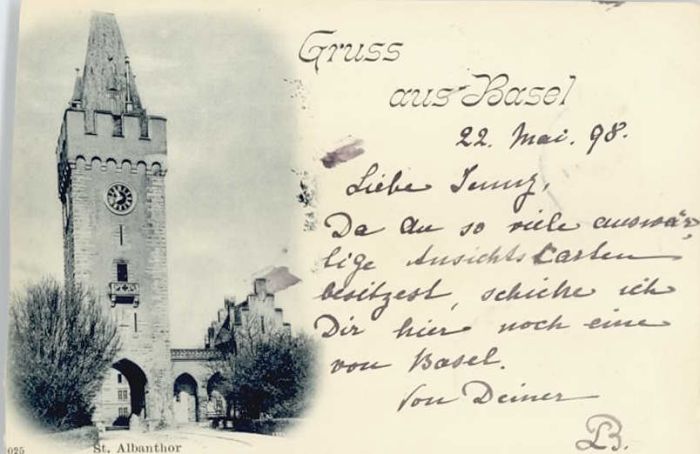 Gruss
aus Basel
22. Mai. 98.
Liebe Jenny,
Da du so viele auswär-
tige Ansichtskarten
besitzest, schicke ich
Dir hier noch eine
von Basel.
Von Deiner
B.
025
St. Albanthor